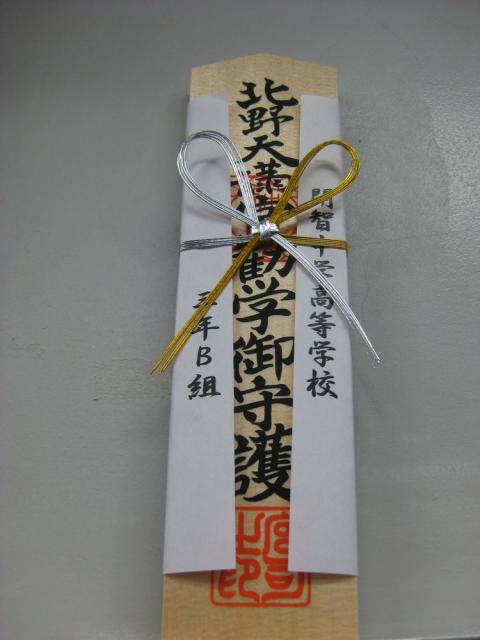 開智中学高等学校
北野天満宮勧学御守護
三年B組
宮司之印